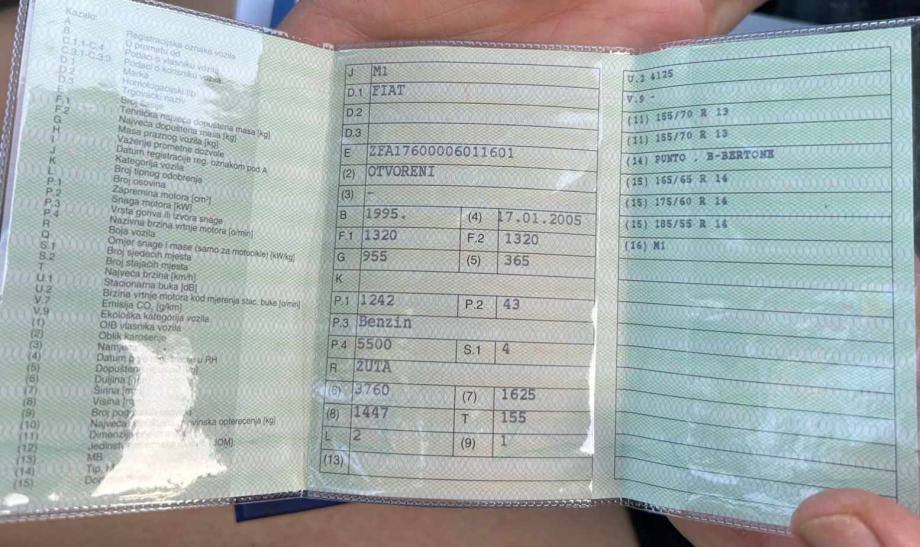 Kazalo:
A Registracijska oznaka vozila
B U prometu od
C.1.1-C.4 Podaci o vlasniku vozila
C.3.1-C.3.3 Podaci o korisniku vozila
D.1 Marka
D.2 Homologacijski tip
D.3 Trgovački naziv
E Broj šasije
F.1 Tehnička najveća dopuštena masa [kg]
F.2 Najveća dopuštena masa [kg]
G Masa praznog vozila [kg]
H Važenje prometne dozvole
I Datum registracije reg. oznakom pod A
J Kategorija vozila
K Broj tipnog odobrenje
L Broj osovina
P.1 Zapremina motora [cm³]
P.2 Snaga motora [kW]
P.3 Vrsta goriva ili izvora snage
P.4 Nazivna brzina vrtnje motora [o/min]
R Boja vozila
Q Omjer snage i mase (samo za motocikle) [kW/kg]
S.1 Broj sjedećih mjesta
S.2 Broj stajaćih mjesta
T Najveća brzina [km/h]
U.1 Stacionarna buka [dB]
U.2 Brzina vrtnje motora kod mjerenja stac. buke [o/min]
V.7 Emisija CO₂ [g/km]
V.9 Ekološka kategorija vozila
(1) OIB vlasnika vozila
(2) Oblik karoserije
(3)
(4) Datum u RH
(5)
(6) Duljina
(7) Širina
(8) Visina
(9) Broj
(10) Najveća opterećenja [kg]
(11)
(12)
(13) MB
(14) Tip,
(15)
J M1
D.1 FIAT
D.2
D.3
E ZFA17600006011601
(2) OTVORENI
(3) -
B 1995. (4) 17.01.2005
F.1 1320 F.2 1320
G 955 (5) 365
K
P.1 1242 P.2 43
P.3 Benzin
P.4 5500 S.1 4
R ŽUTA
(6) 3760 (7) 1625
(8) 1447 T 155
L 2 (9) 1
(13)
U.2 4125
V.9 -
(11) 155/70 R 13
(11) 155/70 R 13
(14) PUNTO . B-BERTONE
(15) 165/65 R 14
(15) 175/60 R 14
(15) 185/55 R 14
(16) M1